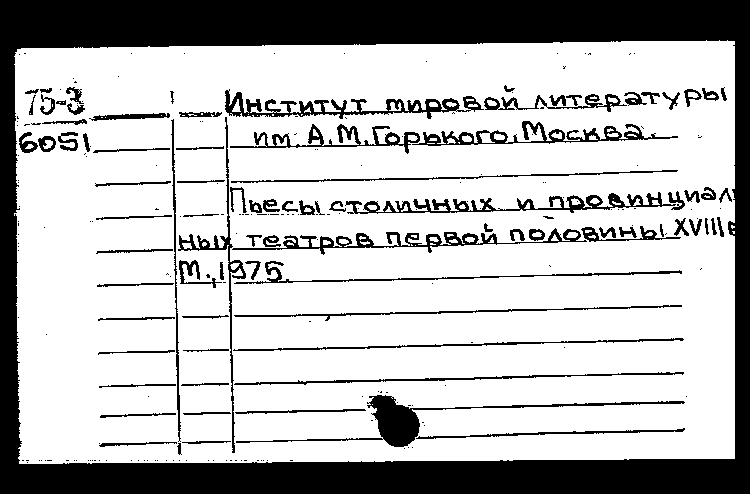 75-3
6051
Институт мировой литературы
им. А.М.Горького, Москва.
Пьесы столичных и провинциаль
ных театров первой половины XVIII в
М., 1975.